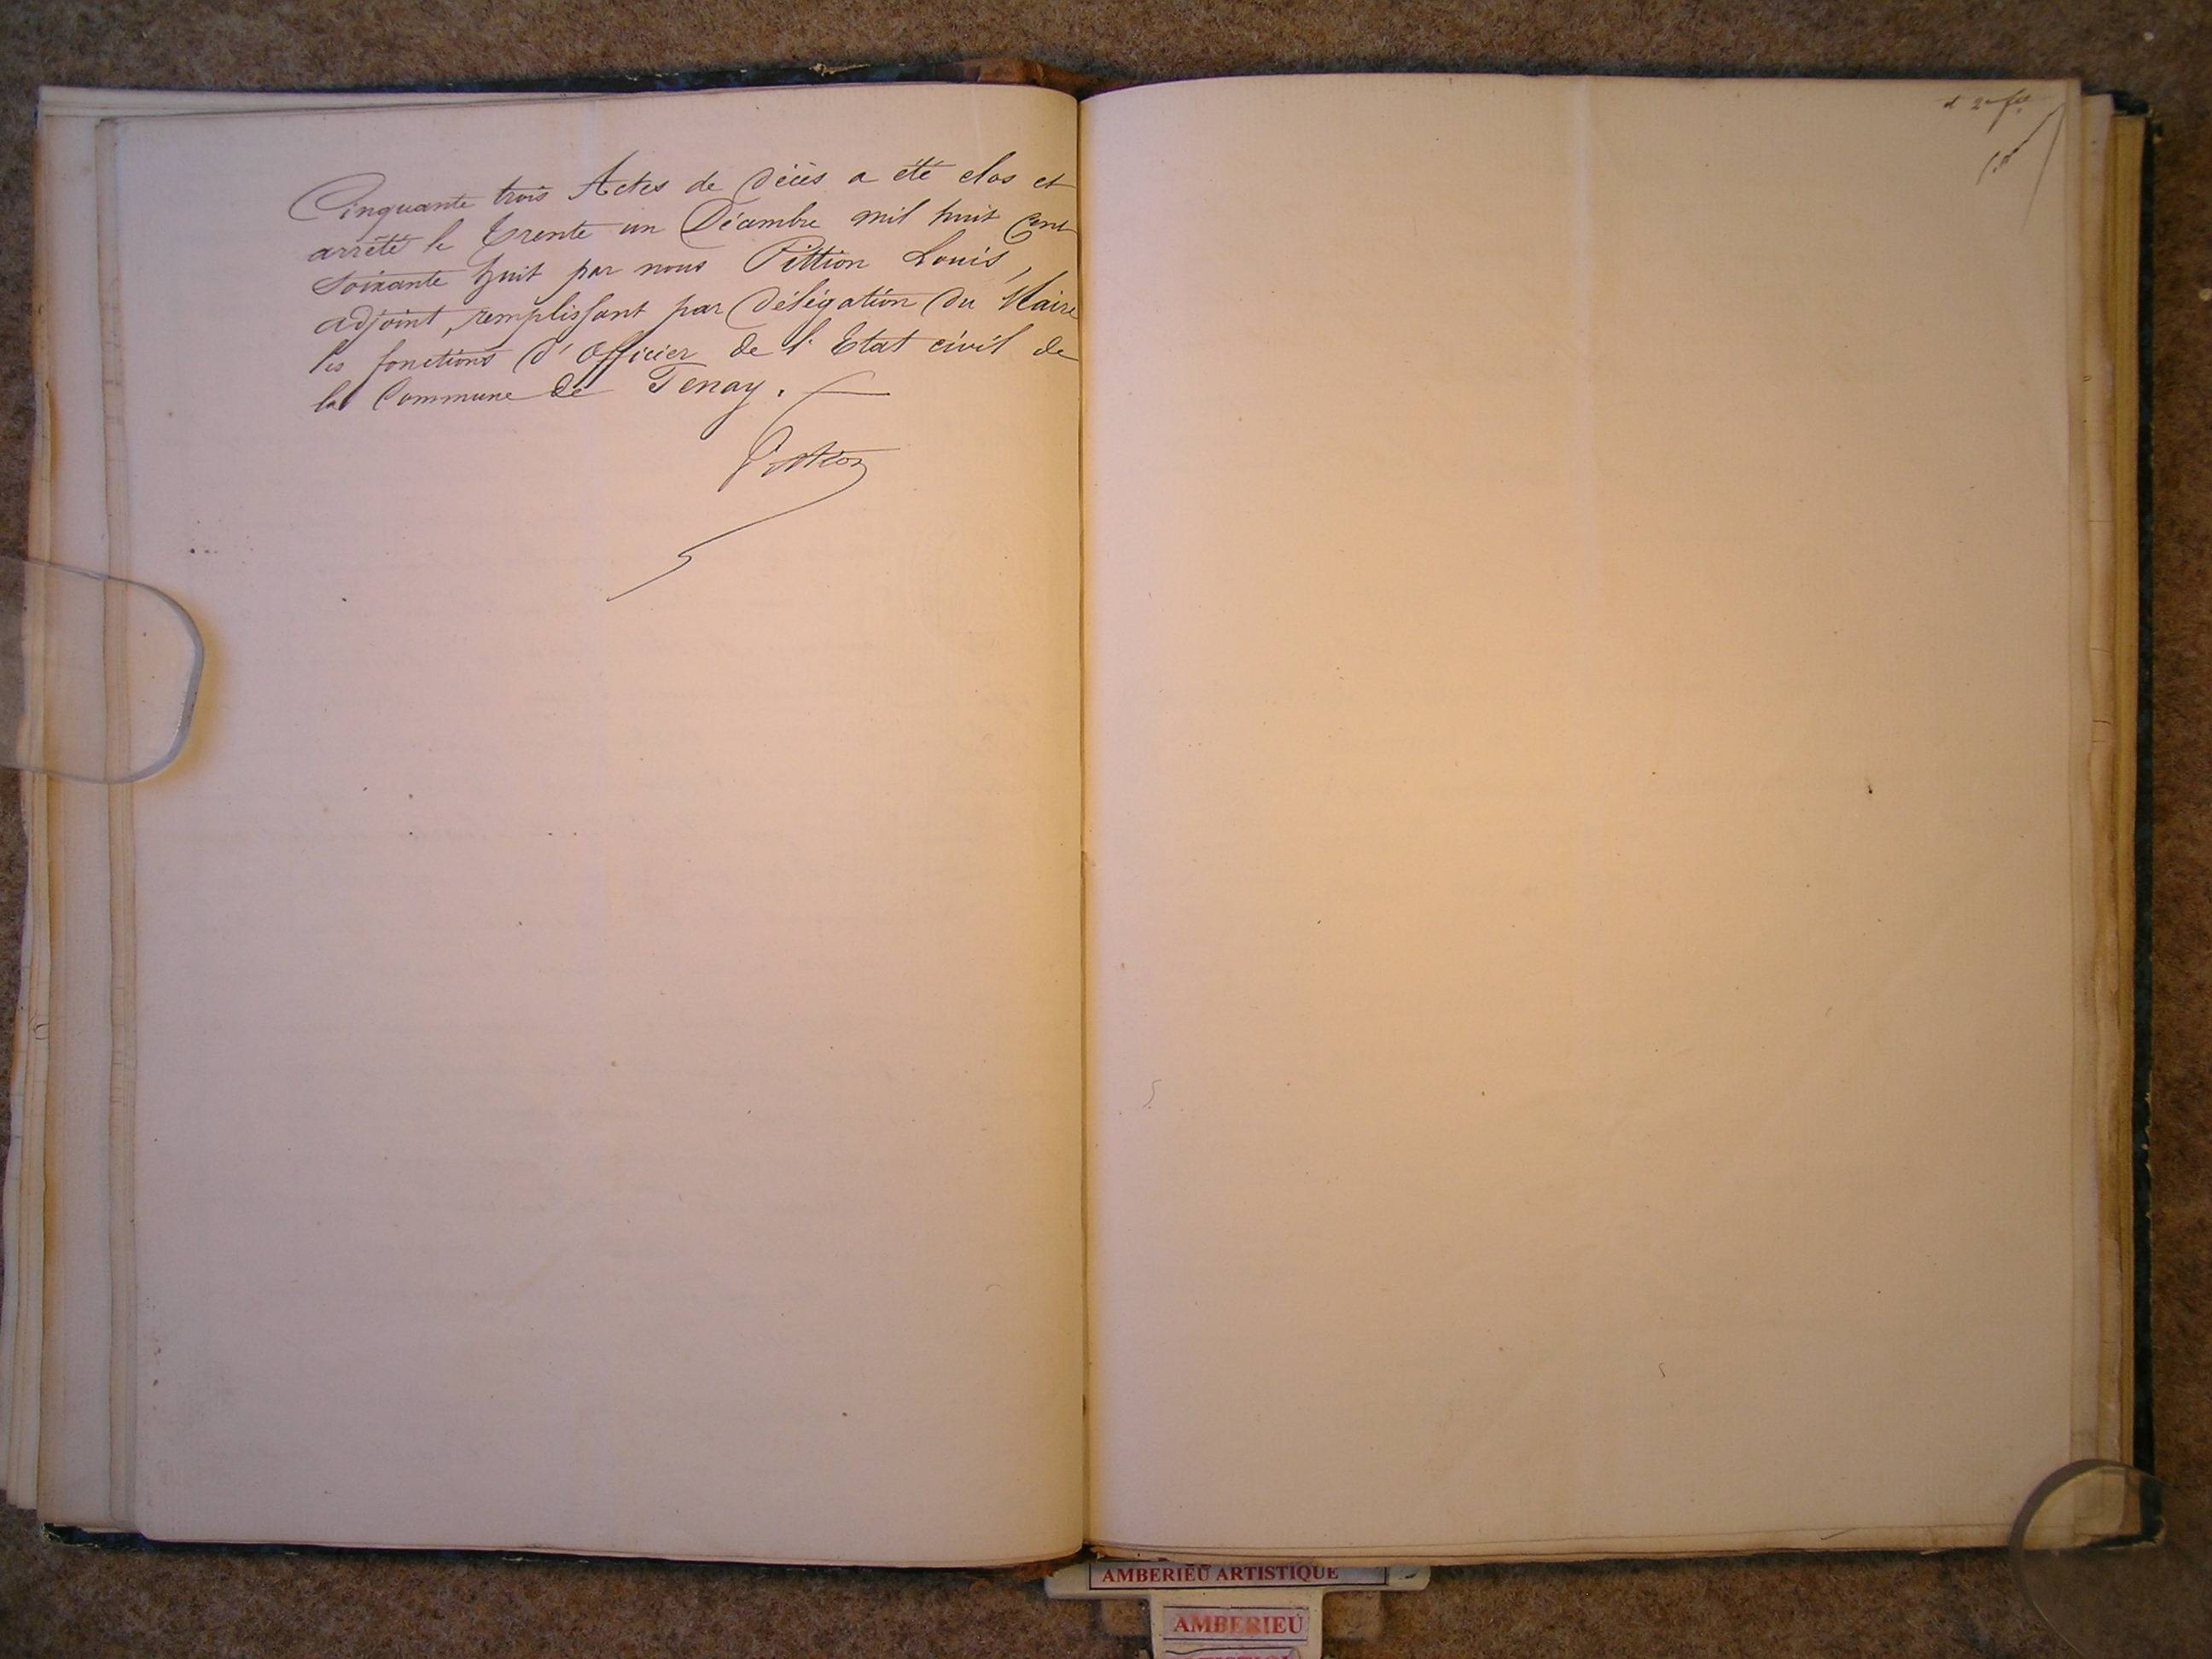 Cinquante trois Actes de Décès a été clos et
arrêté le Trente un Décembre mil huit Cent
soixante huit par nous Pittion Louis,
adjoint, remplissant par Délégation du Maire
les fonctions d'Officier de l'Etat civil de
la Commune de Tenay.
Pittion
AMBERIEU ARTISTIQUE
AMBERIEU